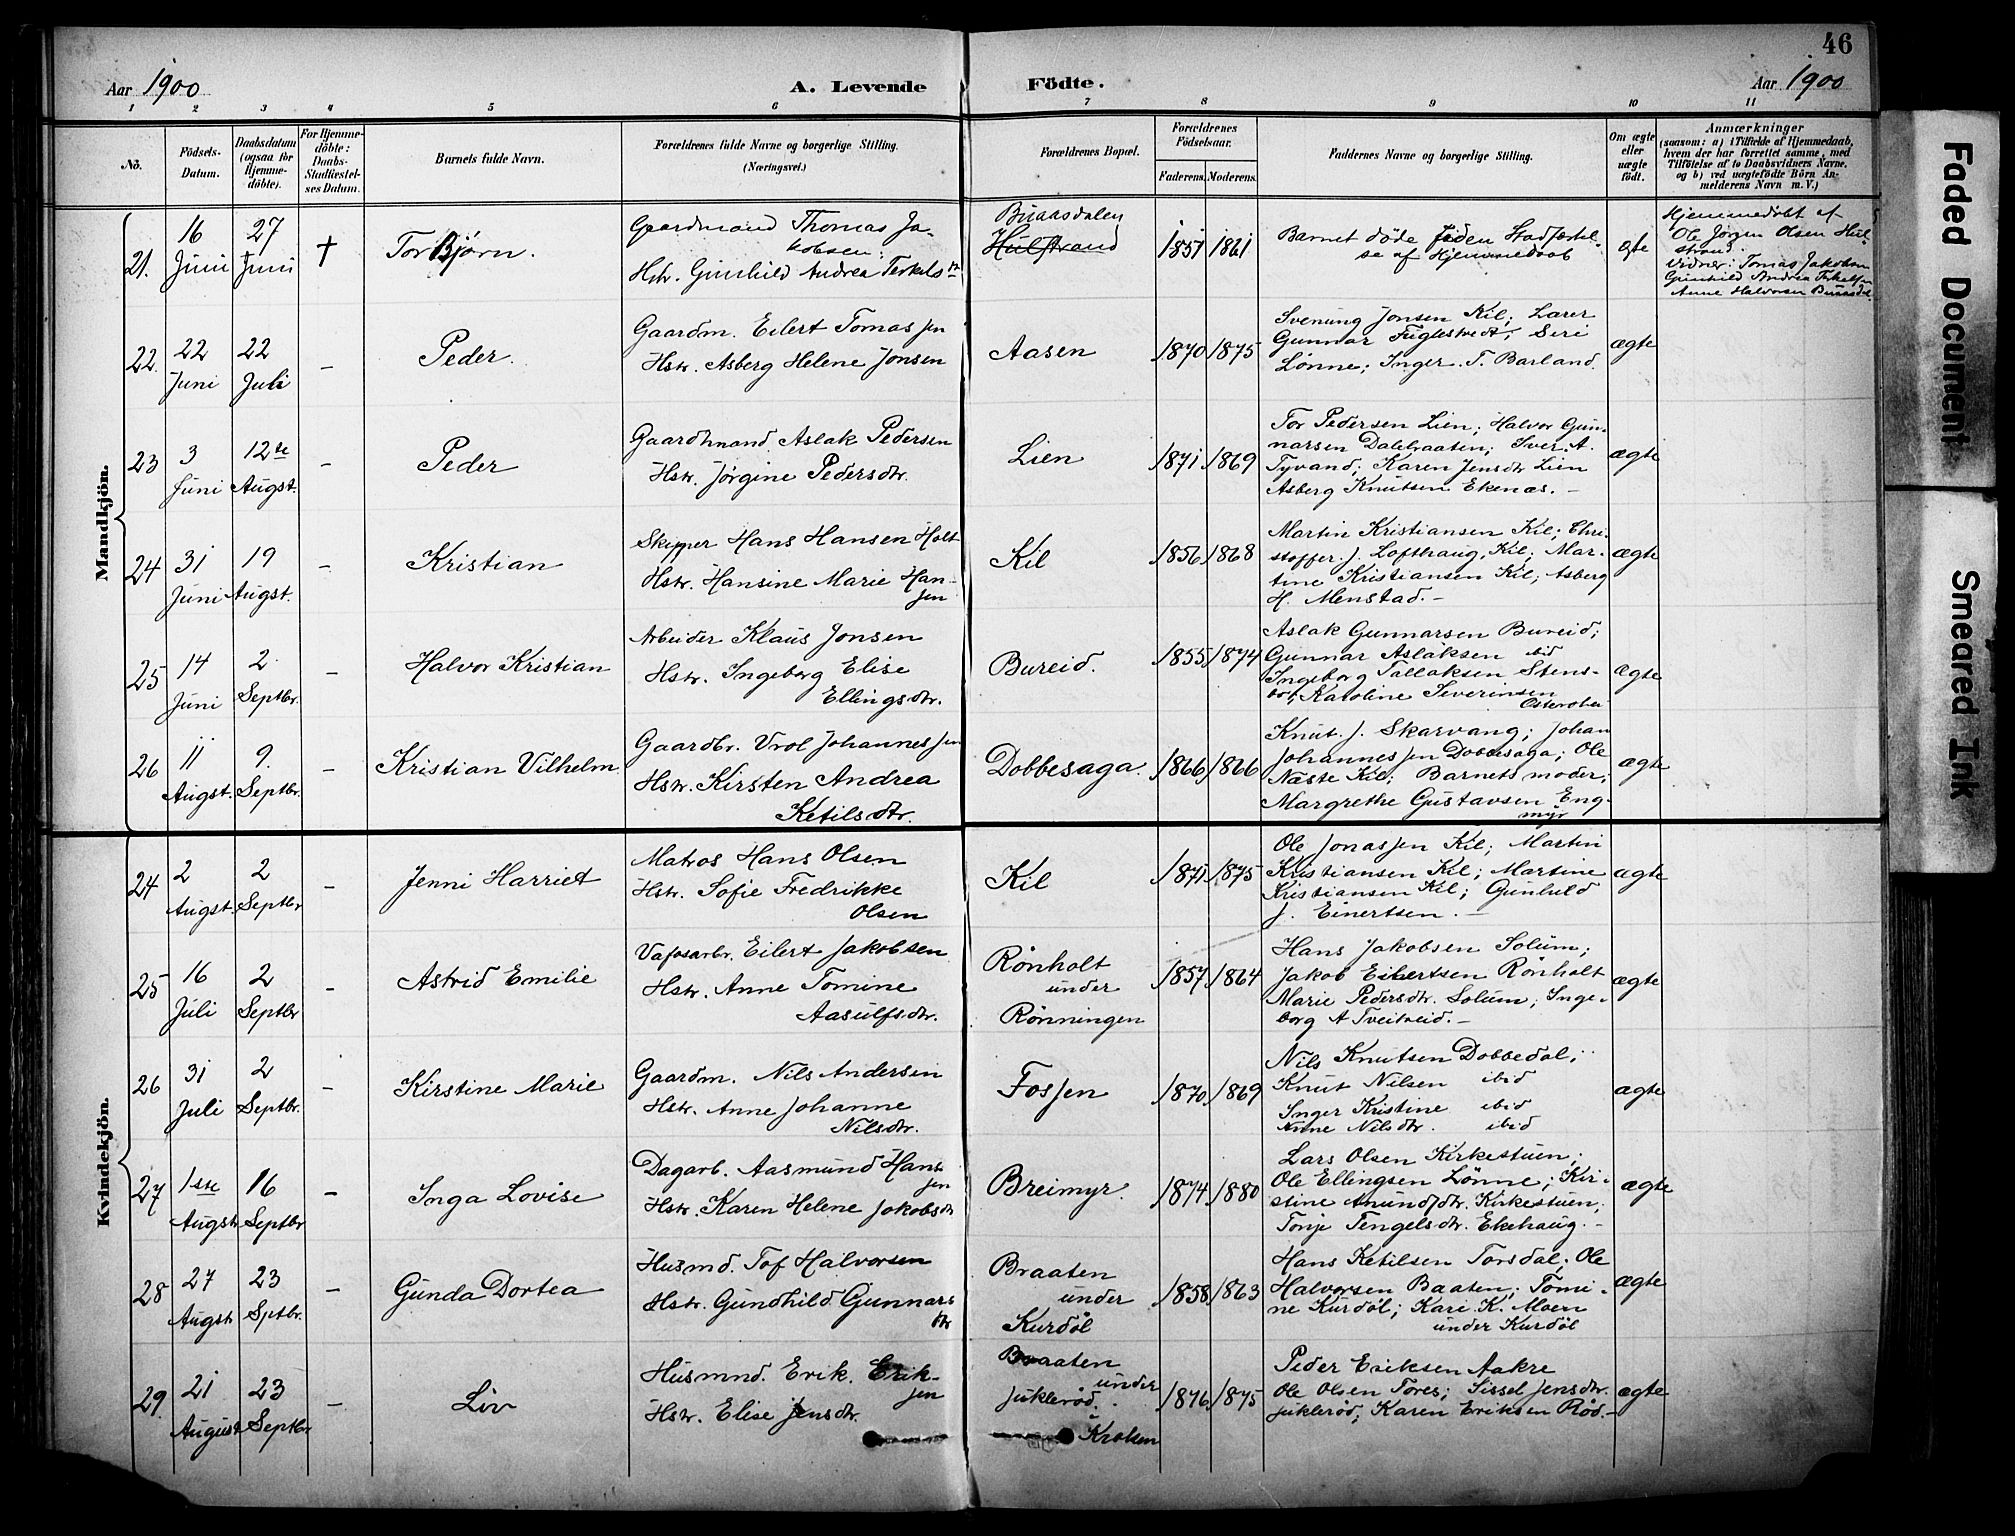 46
Aar 1900
A. Levende Födte.
Aar 1900
1 2 3 4 5 6 7 8 9 10 11
No.
Födsels-
Datum.
Daabsdatum
(ogsaa for
Hjemme-
döbte).
For Hjemme-
döbte:
Daabs-
Stadfæstel-
ses Datum.
Barnets fulde Navn.
Forældrenes fulde Navne og borgerlige Stilling.
(Næringsvei.)
Forældrenes Bopæl.
Forældrenes
Födselsaar.
Faderens.
Moderens.
Faddernes Navne og borgerlige Stilling.
Om ægte
eller
uægte
födt.
Anmærkninger
(saasom: a) i Tilfælde af Hjemmedaab,
hvem der har forrettet samme, med
Tilföielse af to Daabsvidners Navne,
og b) ved uægtefödte Börn An-
melderens Navn m. V.)
Mandkjön.
21.
16
Juni
27
Juni
†
Tor Bjørn.
Gaardmand Thomas Ja-
kobsen.
Hstr. Gunhild Andrea Terkels
Buaasdalen
Hulstrand
1851
1861
Barnet døde før den Stadfæstel-
se af Hjemmedaab
ægte
Hjemmedøbt af
Ole Jørgen Olsen Hul-
strand.
Vidner: Tomas Jakobsen
Gunhild Andrea Terkelsen
Anne Halvorsen Buaasdal
22.
22
Juni
22
Juli
–
Peder.
Gaardm. Eilert Tomassen
Hstr. Asberg Helene Jonsen
Aasen
1870
1875
Svenung Jonsen Kil; Lærer
Gunnar Fuglestvedt; Siri
Lønne; Inger T. Barland.
ægte
23
3
Juni
12te
Augst.
–
Peder
Gaardmand Aslak Pedersen
Hstr. Jørgine Pedersdtr.
Lien
1871
1869
Tor Pedersen Lien; Halvor Gun-
narsen Dalebraaten; Iver A.
Tyvand; Karen Jensdtr Lien
Asberg Knutsen Ekenæs. –
ægte
24
31
Juni
19
Augst.
–
Kristian
Skipper Hans Hansen Holt
Hstr. Hansine Marie Han-
sen
Kil
1856
1868
Martin Kristiansen Kil; Chri-
stoffer J. Lofthaug, Kil; Mar-
tine Kristiansen Kil; Asberg
H. Menstad. –
ægte
25
14
Juni
2
Septbr.
–
Halvor Kristian
Arbeider Klaus Jonsen
Hstr. Ingeborg Elise
Ellingsdtr.
Bureid.
1855
1874
Aslak Gunnarsen Bureid;
Gunnar Aslaksen ibid
Ingeborg Tallaksen Stens-
bo; Karoline Severinsen
ægte
26
11
Augst.
9.
Septbr.
–
Kristian Vilhelm.
Gaardbr. Vrol Johannessen
Hstr. Kirsten Andrea
Ketilsdtr.
Dobbesaga.
1866
1866
Knut J. Skarvang; Johan
Johannessen Dobbesaga; Ole
Næste Kil; Barnets moder;
Margrethe Gustavsen Eng-
myr
ægte
Kvindekjön.
24
2
Augst.
2
Septbr
–
Jenni Harriet
Matros Hans Olsen
Hstr. Sofie Fredrikke
Olsen
Kil
1871
1875
Ole Jonassen Kil; Martin
Kristiansen Kil; Martine
Kristiansen Kil; Gunhild
J. Einertsen. –
ægte
25
16
Juli
2
Septbr
–
Astrid Emilie
Vafosarbr. Eilert Jakobsen
Hstr. Anne Tomine
Aasulfsdtr.
Rönholt
under
Rönningen
1857
1864
Hans Jakobsen Solum;
Jakob Eilertsen Rönholt
Marie Pedersdtr. Solum; Inge-
borg A Tveiteid. –
ægte
26
31
Juli
2
Septbr.
–
Kirstine Marie
Gaardm. Nils Andersen
Hstr. Anne Johanne
Nilsdtr.
Fossen
1870
1869
Nils Knutsen Dobbedal;
Knut Nilsen ibid
Inger Kristine ibid
Anne Nilsdtr. ibid
ægte
27
1ste
Augst
16
Septbr
–
Inga Lovise
Dagarb. Aasmund Hans-
sen
Hstr. Karen Helene Jakobsdtr
Breimyr.
1874
1880
Lars Olsen Kirkestuen;
Ole Ellingsen Lønne; Kir-
stine Anundsdtr. Kirkestuen;
Tonje Tengelsdtr. Ekehaug. –
ægte
28
27
Augst
23
Sptbr.
–
Gunda Dortea
Husmd. Tof Halvorsen
Hstr. Gundhild Gunnars
dtr
Braaten
under
Kurdöl
1858
1863
Hans Ketilsen Torsdal; Ole
Halvorsen Baaten; Tomi-
ne Kurdöl; Kari K. Moen
under Kurdöl
ægte
29.
21
August
23
Septbr
–
Liv
Husmnd. Erik Erik-
sen
Hstr. Elise Jensdtr.
Braaten
under
Juklerød.
Kroken
1876
1875
Peder Eriksen Aakre
Ole Olsen Tores; Sissel Jensdtr.
Juklerød; Karen Eriksen Rød. –
ægte
Faded Document
Smeared Ink